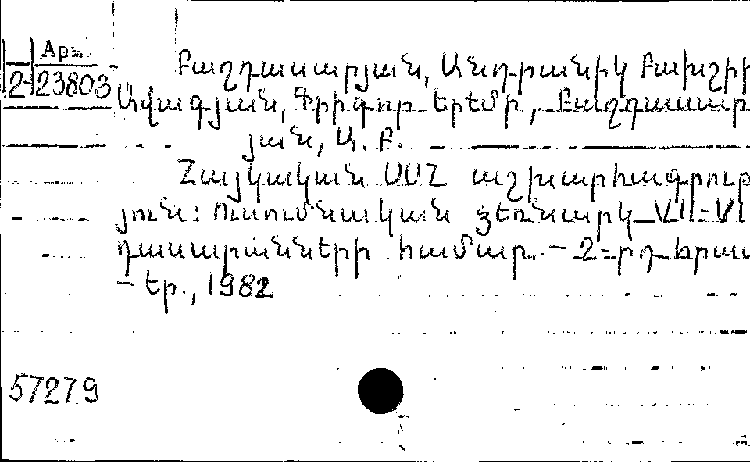 Арм.
2-23803
Բաղդասարյան, Անդրանիկ Բախշիի
Ավագյան, Գրիգոր Երեմի, Բաղդասար
յան, Ա. Բ.
Հայկական ՍՍՀ աշխարհագրութ
յուն: Ուսումնական ձեռնարկ VII-VI
դասարանների համար.- 2-րդ հրատ
- Եր., 1982
57279